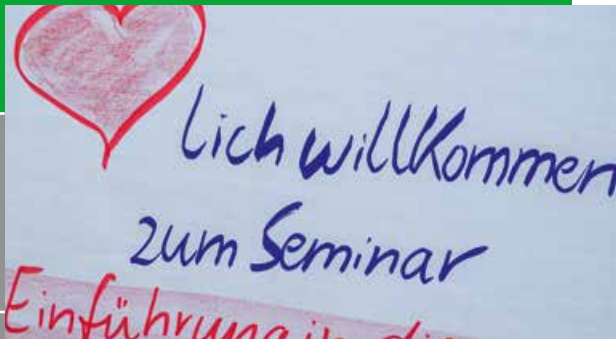 lich willkommen
zum Seminar
Einführung in die